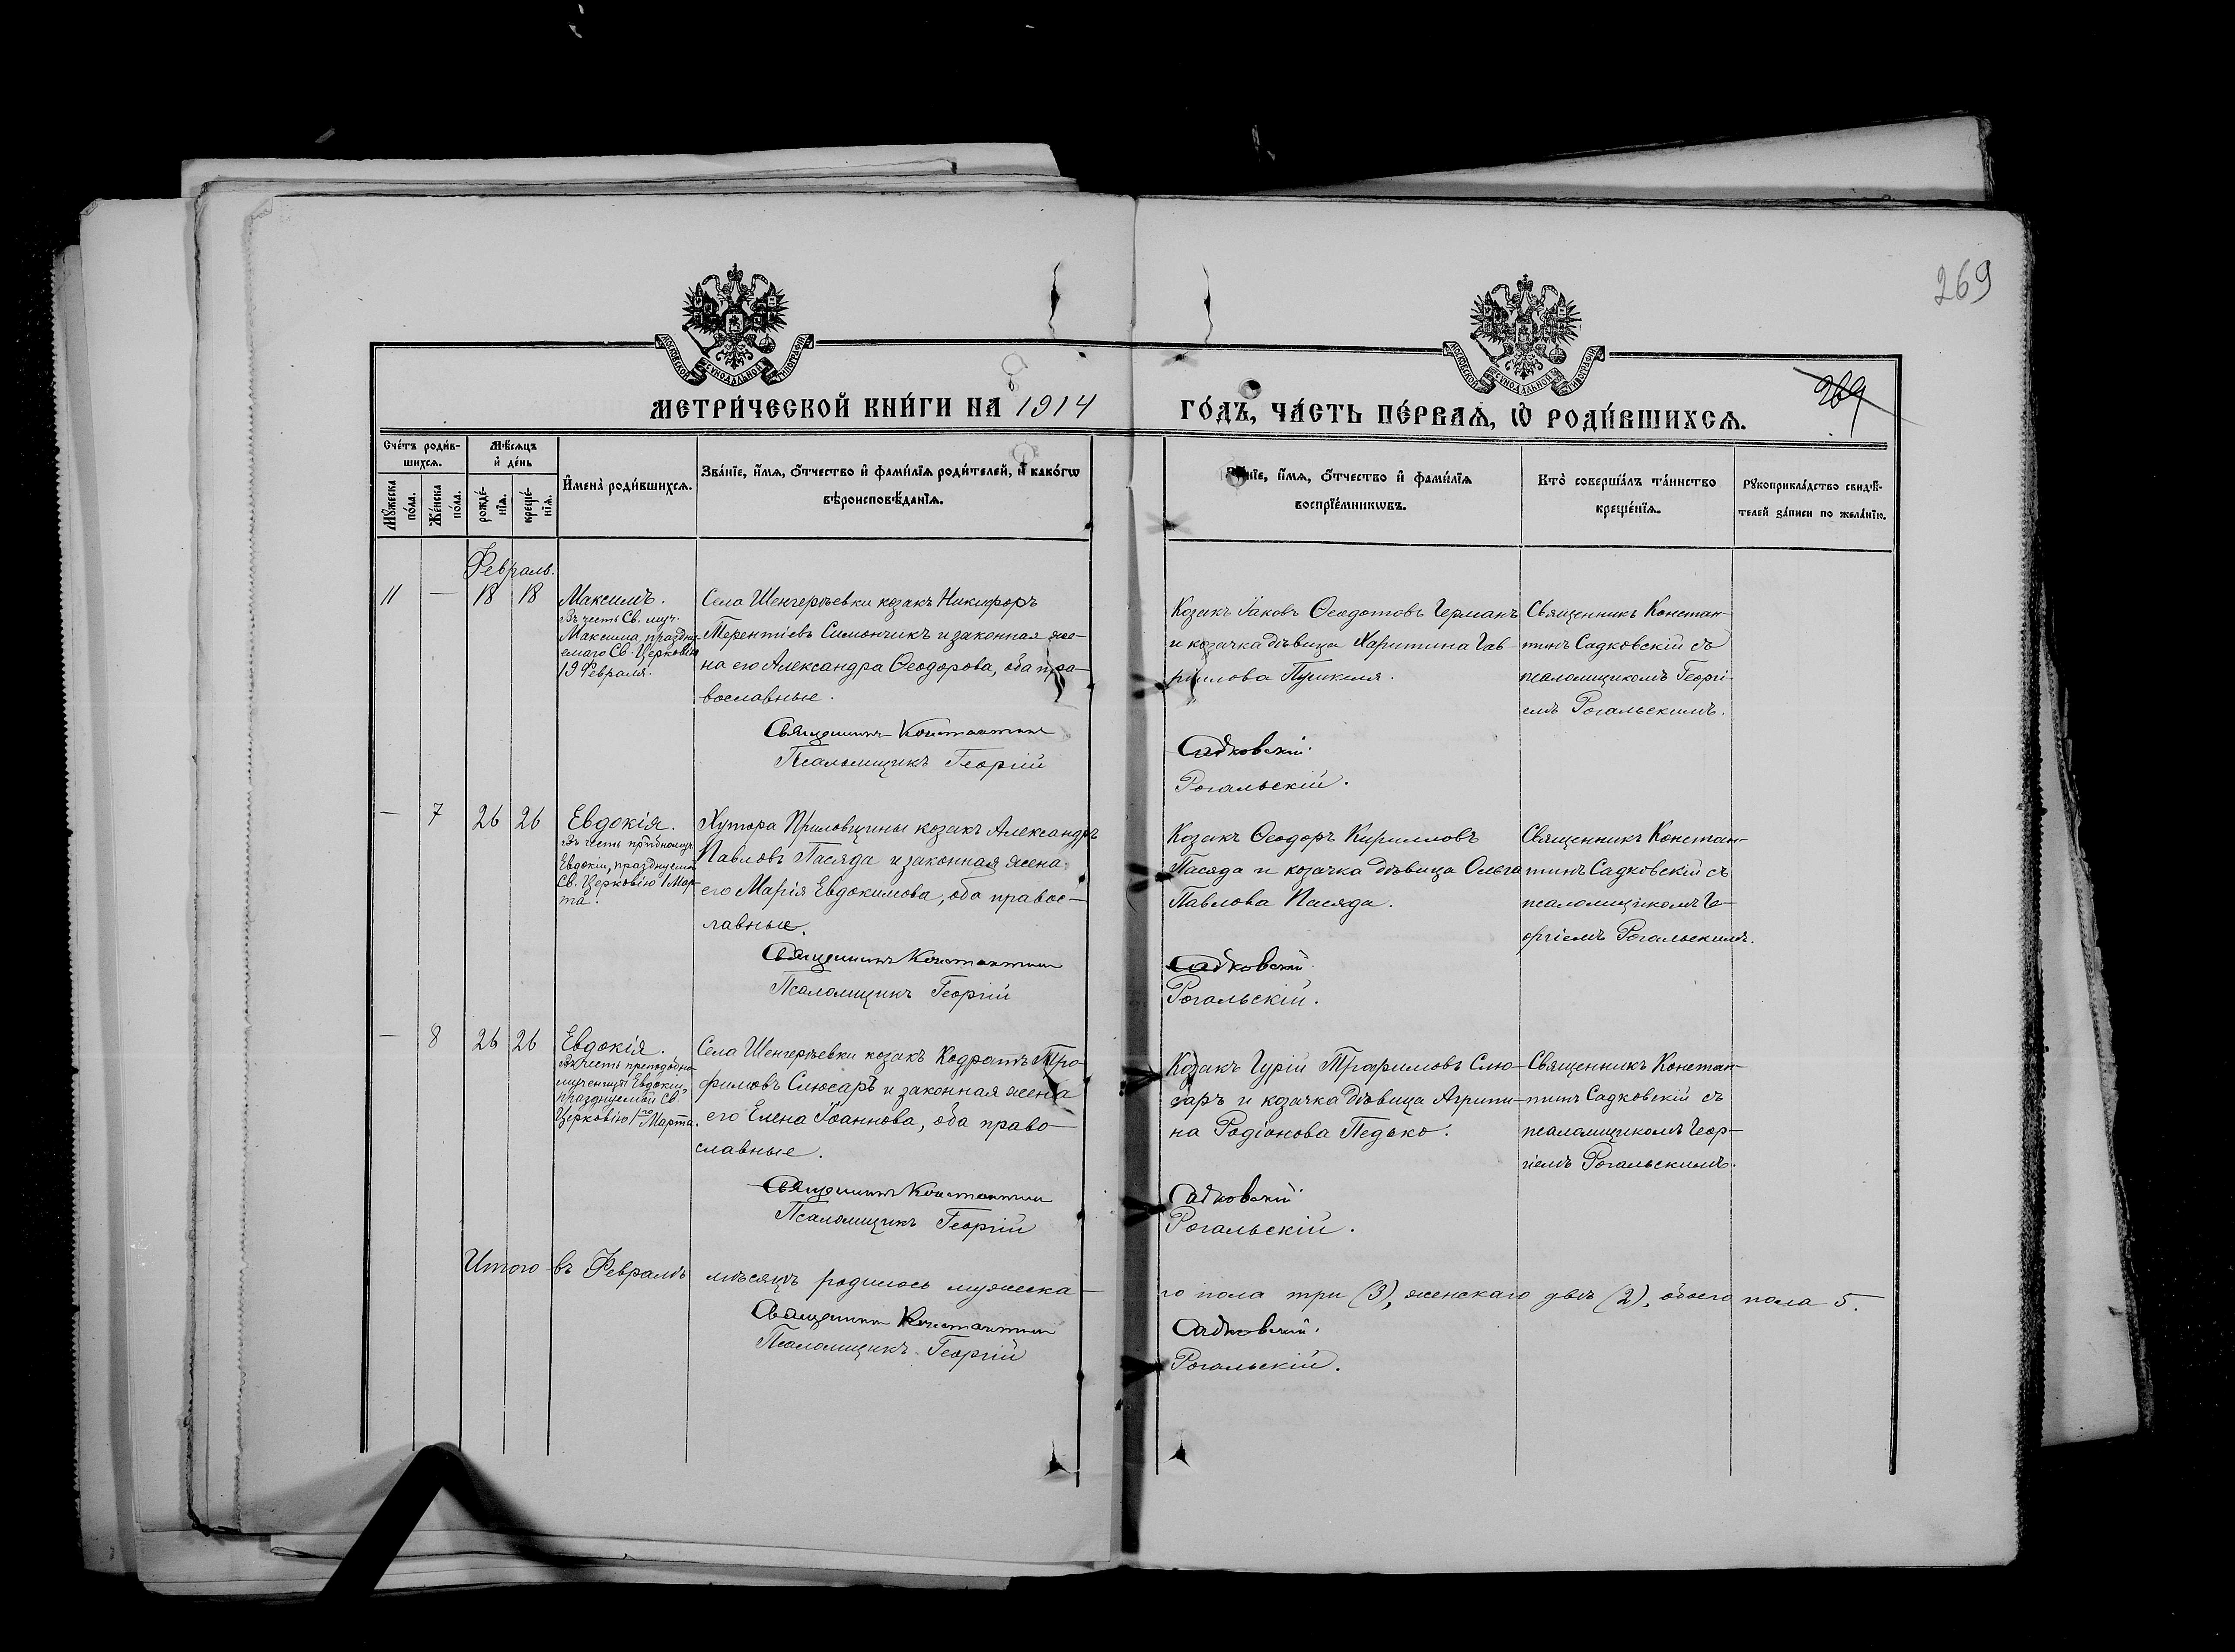 269
МОСКОВСКОЙ СУНОДАЛЬНОЙ ТИПОГРАФІИ
МОСКОВСКОЙ СУНОДАЛЬНОЙ ТИПОГРАФІИ
269
МЕТРИ́ЧЕСКОЙ КНИ́ГИ НА 1914
ГО́ДЪ, ЧА́СТЬ ПЕ́РВАѦ, Ѡ҆ РОДИ́ВШИХСѦ.
Сче́тъ роди́в-
шихсѧ.
Мѣ́сѧцъ
и҆ де́нь
Мꙋ́жеска по́ла.
Же́нска по́ла.
рожде́-
нїѧ.
креще́-
нїѧ.
И҆мена̀ роди́вшихсѧ.
Зва́нїе, и҆́мѧ, ѻ҆́тчество и҆ фами́лїѧ роди́телей, и҆ како́гѡ
вѣроисповѣ́данїѧ.
Зва́нїе, и҆́мѧ, ѻ҆́тчество и҆ фами́лїѧ
воспрїе́мникѡвъ.
Кто̀ соверша́лъ та́инство
креще́нїѧ.
Рꙋкоприкла́дство свидѣ́-
телей за́писи по жела́нїю.
Февраль.
11 — 18 18
Максимъ.
Въ честь Св. муч.
Максима, праздну-
емаго Св. Церковію
19 Февраля.
Села Шенгеръевки козакъ Никифоръ
Терентіевъ Симончикъ и законная же-
на его Александра Ѳеодорова, оба пра-
вославные.
Священникъ Константинъ
Псаломщикъ Георгій
Козакъ Іаковъ Ѳеодотовъ Германъ
и козачка дѣвица Харитина Гав-
риилова Пушкеля.
Садковскій.
Рогальскій.
Священникъ Констан-
тинъ Садковскій съ
псаломщикомъ Георгі-
емъ Рогальскимъ.
— 7 26 26
Евдокія.
Въ честь прпдномуч.
Евдокіи, празднуемой
Св. Церковію 1 Мар-
та.
Хутора Приловщины козакъ Александръ
Павловъ Пасяда и законная жена
его Марія Евдокимова, оба правос-
лавные.
Священникъ Константинъ
Псаломщикъ Георгій
Козакъ Ѳеодоръ Кирилловъ
Пасяда и козачка дѣвица Ольга
Павлова Пасяда.
Садковскій.
Рогальскій.
Священникъ Констан-
тинъ Садковскій съ
псаломщикомъ Ге-
оргіемъ Рогальскимъ.
— 8 26 26
Евдокія.
Въ честь преподобно-
мученицы Евдокіи,
празднуемой Св.
Церковію 1го Марта.
Села Шенгеръевки козакъ Кодратъ Тро-
фимовъ Слюсаръ и законная жена
его Елена Іоаннова, оба право-
славные.
Священникъ Константинъ
Псаломщикъ Георгій
Козакъ Гурій Трофимовъ Слю-
саръ и козачка дѣвица Агрипи-
на Родіонова Педько.
Садковскій.
Рогальскій.
Священникъ Констан-
тинъ Садковскій съ
псаломщикомъ Геор-
гіемъ Рогальскимъ.
Итого въ Февралѣ мѣсяцѣ родилось мужеска-
го пола три (3), женскаго двѣ (2), обоего пола 5.
Священникъ Константинъ
Псаломщикъ Георгій
Садковскій.
Рогальскій.